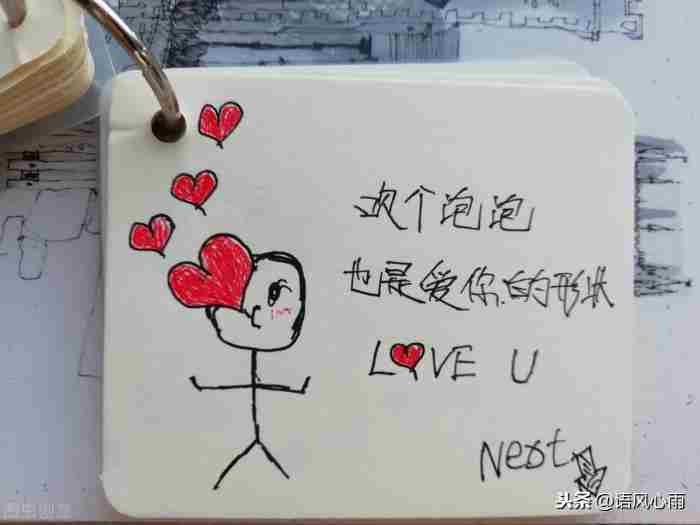 吹个泡泡
也是爱你的形状
LOVE U
Next
头条 @语风心雨